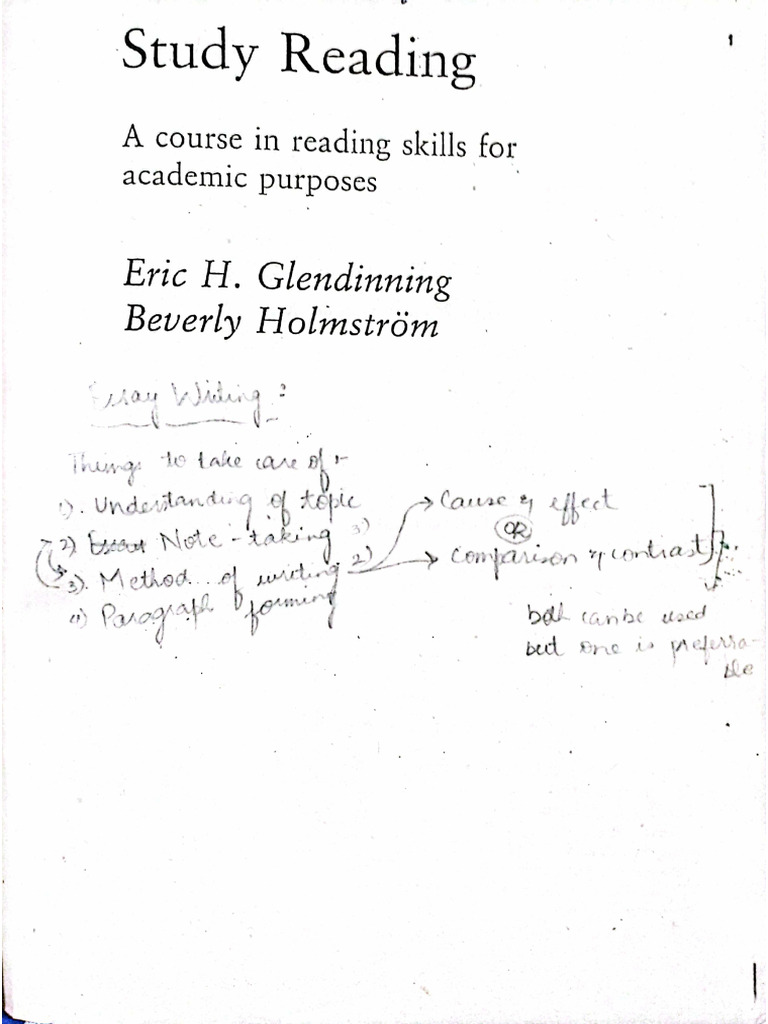 1
Study Reading
A course in reading skills for
academic purposes
Eric H. Glendinning
Beverly Holmström
Essay Writing :
Things to take care of :-
1). Understanding of topic
2) Note-taking 3)
3). Method of writing 2)
4) Paragraph forming
Cause & effect
OR
Comparison & contrast
both can be used
but one is preferra-
ble